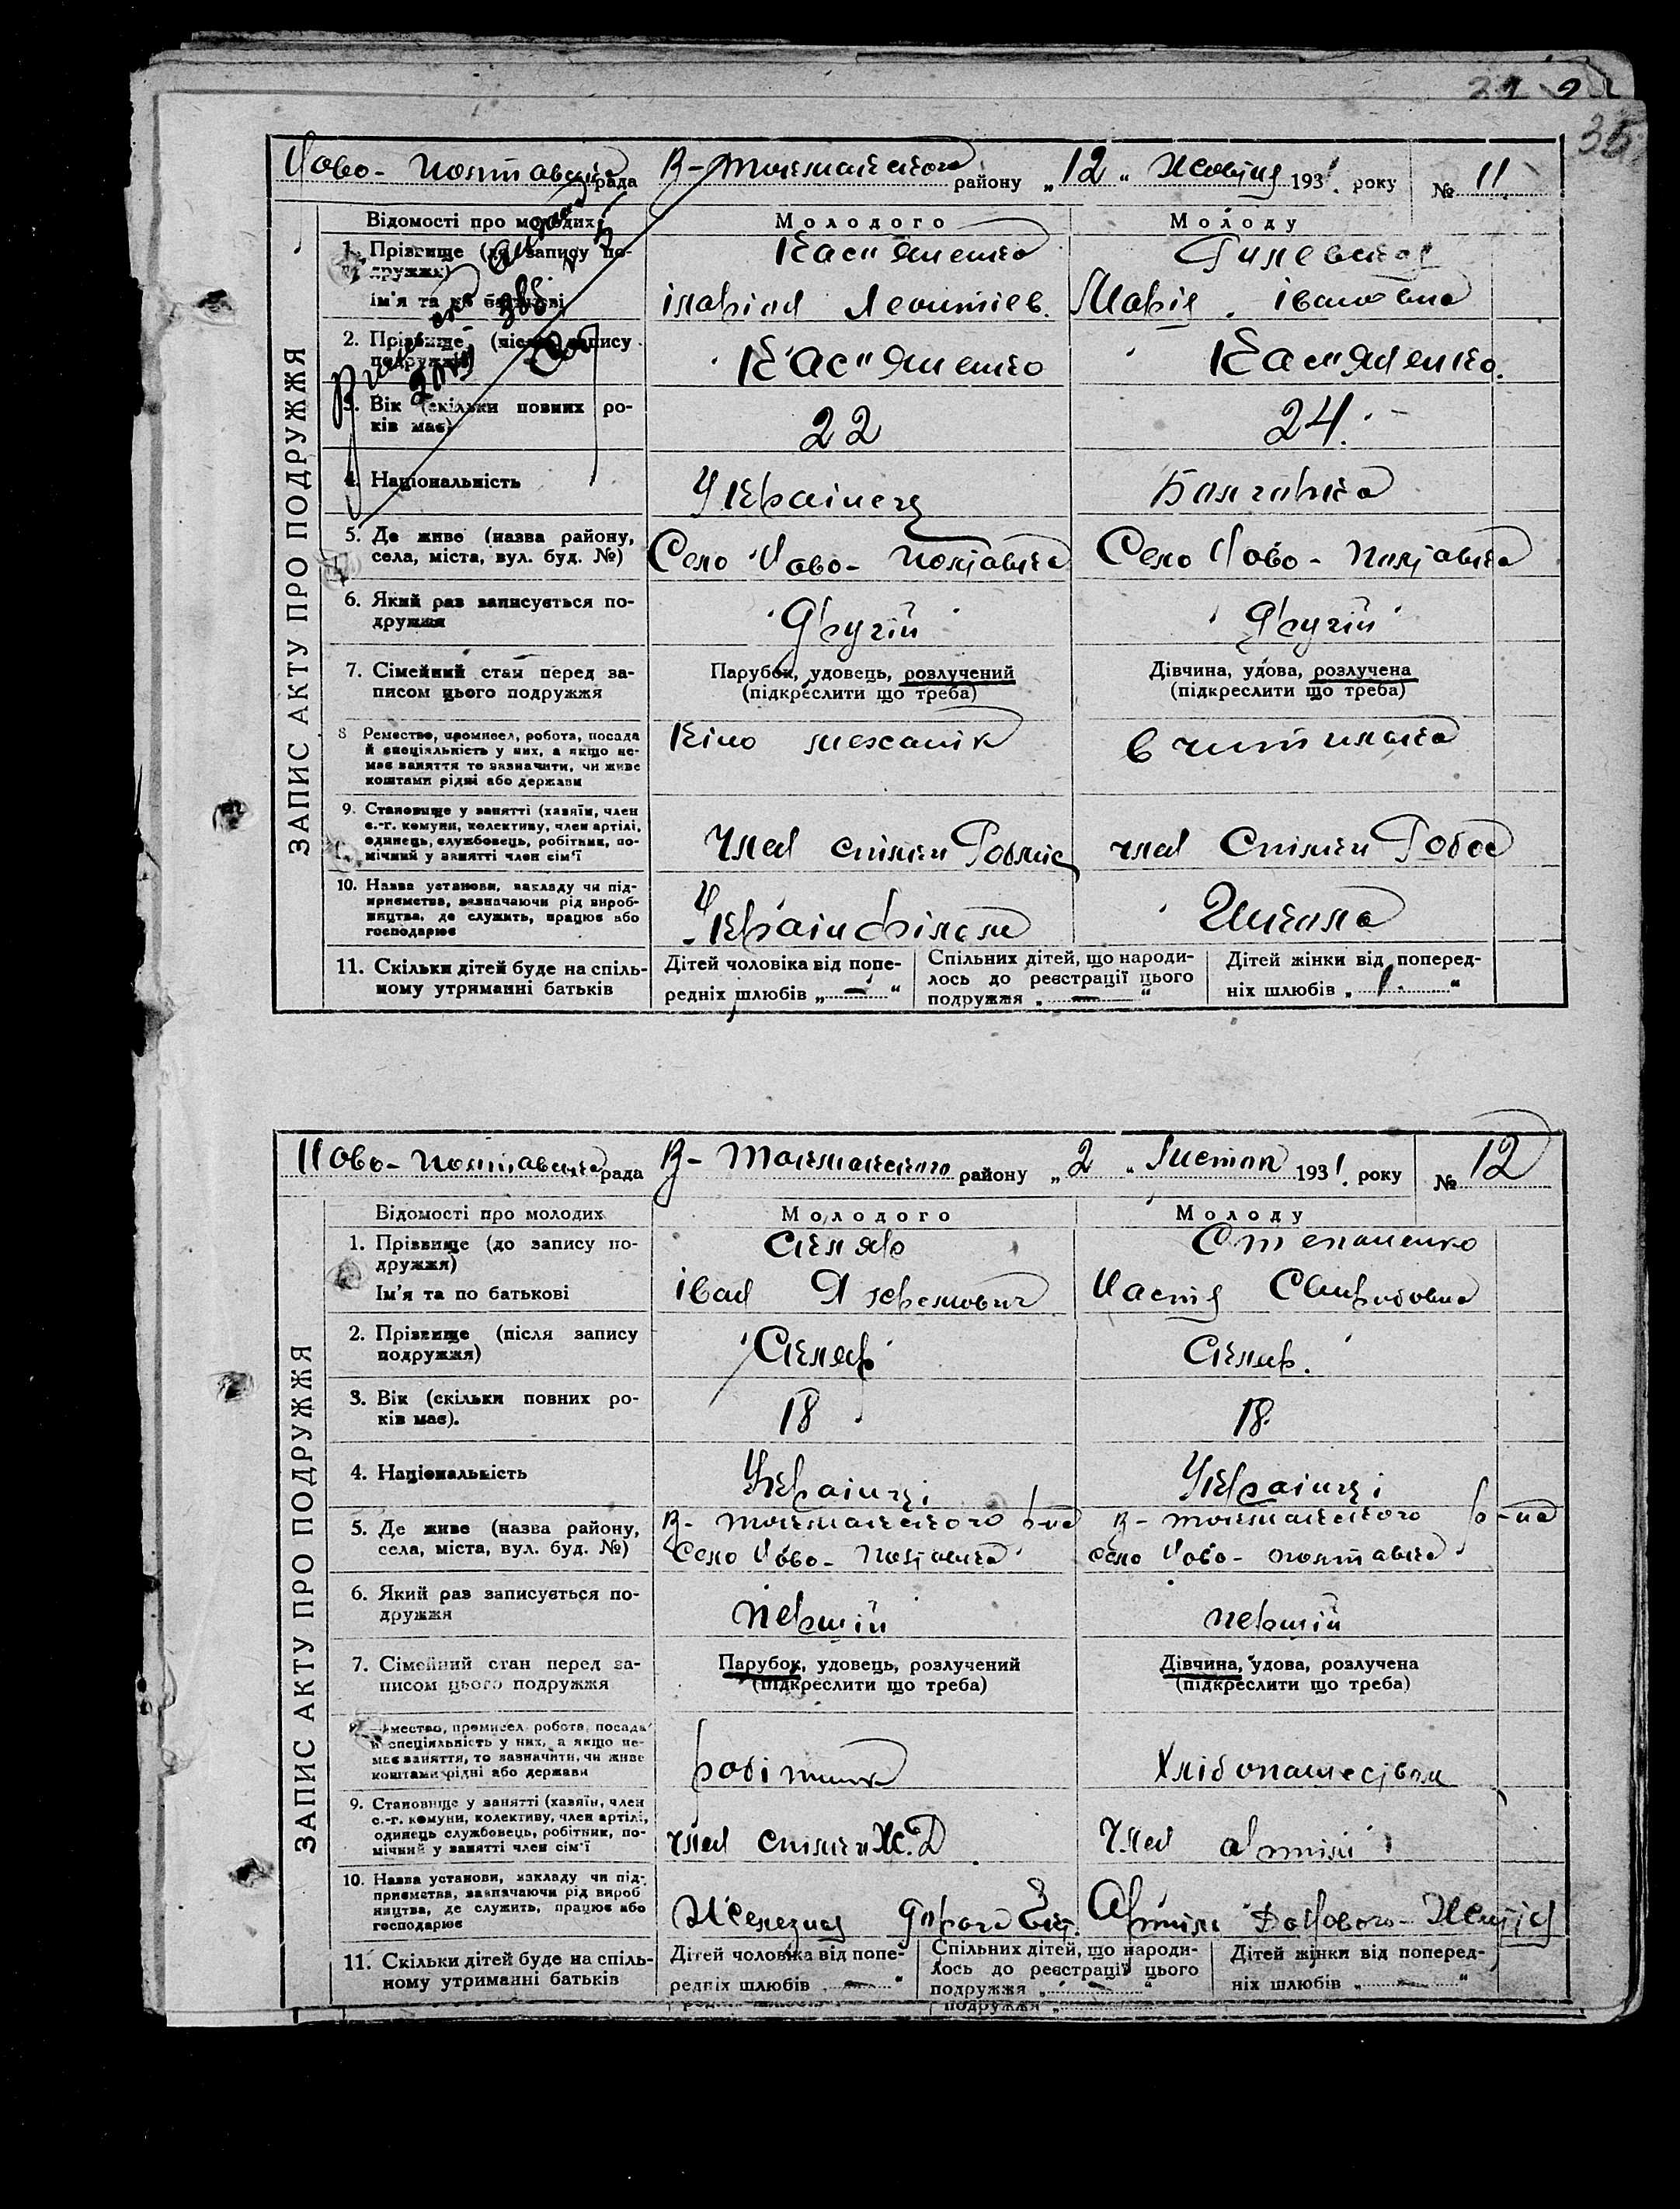 35
Ново-Полтавська рада В-Токмакского району „12“ Жовтня 1931 року № 11
ЗАПИС АКТУ ПРО ПОДРУЖЖЯ
Відомості про молодих Молодого Молоду
1. Прізвище (до запису по-
дружжя)
Касʼяненко
ім'я та по батькові
Іларіон Леонтіев. Марія Івановна
2. Прізвище (після запису
подружжя)
Касʼяненко Касʼяненко.
3. Вік (скільки повних ро-
ків має)
22 24.
4. Національність
Українец Болгарка
5. Де живе (назва району,
села, міста, вул. буд. №)
Село Ново-Полтавка Село Ново-Полтавка
6. Який раз записується по-
дружжя
Другій Другій
7. Сімейний стан перед за-
писом цього подружжя
Парубок, удовець, розлучений
(підкреслити що треба)
Дівчина, удова, розлучена
(підкреслити що треба)
8 Ремество, промисел, робота, посада
й спеціяльність у них, а якщо не-
має заняття то зазначити, чи живе
коштами рідні або держави
Кіно механік вчителька
9. Становище у занятті (хазяїн, член
с.-г. комуни, колективу, член артілі,
одинець, службовець, робітник, по-
мічний у занятті член сім'ї
член спілки член спілки
10. Назва установи, закладу чи під-
приємства, зазначаючи рід вироб-
ництва, де служить, працює або
господарює
Українфільм Школа
11. Скільки дітей буде на спіль-
ному утриманні батьків
Дітей чоловіка від попе-
редніх шлюбів „ — “
Спільних дітей, що народи-
лось до реєстрації цього
подружжя „ — “
Дітей жінки від поперед-
ніх шлюбів „ 1. “
Ново-Полтавська рада В-Токмакского району „2 “ Листоп 1931 року № 12
ЗАПИС АКТУ ПРО ПОДРУЖЖЯ
Відомості про молодих Молодого Молоду
1. Прізвище (до запису по-
дружжя)
Скляр Степаненко
Ім'я та по батькові
Іван Настя Свиридовна
2. Прізвище (після запису
подружжя)
Скляр Скляр.
3. Вік (скільки повних ро-
ків має).
18 18.
4. Національність
Українці Українці
5. Де живе (назва району,
села, міста, вул. буд. №)
В-Токмакского р-на В-Токмакского р-на
Село Ново-Полтавка село Ново-Полтавка
6. Який раз записується по-
дружжя
перший перший
7. Сімейний стан перед за-
писом цього подружжя
Парубок, удовець, розлучений
(підкреслити що треба)
Дівчина, удова, розлучена
(підкреслити що треба)
Ремество, промисел робота, посада
й спеціяльність у них, а якщо не-
має заняття, то зазначити, чи живе
коштами рідні або держави
робітник Хлібопашеством
9. Становище у занятті (хазяїн, член
с.-г. комуни, колективу, член артілі,
одинець службовець, робітник, по-
мічний у занятті член сім'ї
член спілки Ж.Д член артілі
10. Назва установи, закладу чи під-
приємства, зазначаючи рід вироб
ництва, де служить, працює або
господарює
Железная дорога Артіль
11. Скільки дітей буде на спіль-
ному утриманні батьків
Дітей чоловіка від попе-
редніх шлюбів „ — “
Спільних дітей, що народи-
лось до реєстрації цього
подружжя „ — “
Дітей жінки від поперед-
ніх шлюбів „ — “
подружжя „